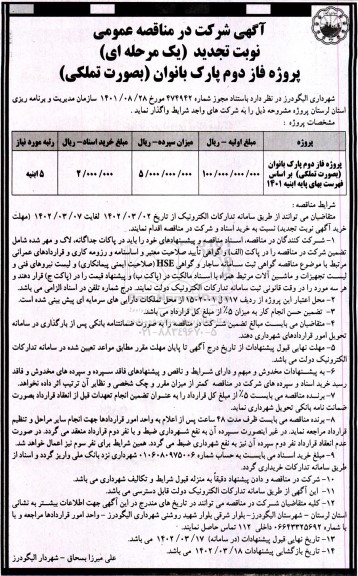 آگهی شرکت در مناقصه عمومی
نوبت تجدید (یک مرحله ای)
پروژه فاز دوم پارک بانوان (بصورت تملکی)
شهرداری الیگودرز در نظر دارد باستناد مجوز شماره ۴۷۴۹۴۲ مورخ ۱۴۰۱/۰۸/۲۸ سازمان مدیریت و برنامه ریزی
استان لرستان پروژه مشروحه ذیل را به شرکت های واجد شرایط واگذار نماید.
مشخصات پروژه:
پروژه مبلغ اولیه - ریال میزان سپرده- ریال مبلغ خرید اسناد- ریال رتبه مورد نیاز
پروژه فاز دوم پارک بانوان
(بصورت تملکی) بر اساس
فهرست بهای پایه ابنیه ۱۴۰۱
۱۰۰/۰۰۰/۰۰۰/۰۰۰ ۵/۰۰۰/۰۰۰/۰۰۰ ۲/۰۰۰/۰۰۰ ۵ ابنیه
شرایط مناقصه:
متقاضیان می توانند از طریق سامانه تدارکات الکترونیک از تاریخ ۱۴۰۲/۰۳/۰۲ لغایت ۱۴۰۲/۰۳/۰۷ (مهلت
خرید آگهی نوبت تجدید) نسبت به خرید اسناد و شرکت در مناقصه اقدام نمایند.
۱- شرکت کنندگان در مناقصه، اسناد مناقصه و پیشنهادهای خود را باید در پاکات جداگانه، لاک و مهر شده شامل
تضمین شرکت در مناقصه را در پاکت (الف) و گواهی تأیید صلاحیت معتبر و اساسنامه و رزومه کاری و قراردادهای عمرانی
مرتبط با موضوع مناقصه گواهی ثبت سامانه ساجار و گواهی HSE (صلاحیت ایمنی پیمانکاری) و لیست نیروهای فنی و
لیست تجهیزات و ماشین آلات مرتبط همراه با اسناد مالکیت در (پاکت ب) و پیشنهاد قیمت را در (پاکت ج) قرار دهند و
هر سه مورد را در وقت قانونی ثبت سامانه تدارکات الکترونیک دولت نمایند. درج شماره تلفن در اسناد الزامی می باشد.
۲- محل اعتبار این پروژه از ردیف ۱۱۷ ل ۱۵۰۲۰۰۱ از محل تملکات دارایی های سرمایه ای پیش بینی شده است.
۳- تضمین حسن انجام کار به میزان ۵٪ از مبلغ کل قرارداد می باشد.
۴- متقاضیان می بایست مبالغ تضمین شرکت در مناقصه را به صورت ضمانتنامه بانکی پس از بارگذاری در سامانه
تحویل امور قراردادهای شهرداری دهند.
۵- مهلت نهایی قبول پیشنهادات از تاریخ درج آگهی تا پایان مهلت مقرر مطابق مواعد تعیین شده در سامانه تدارکات
الکترونیک دولت می باشد.
۶- به پیشنهادات مخدوش و مبهم و دارای شرایط و ناقص و پیشنهادهای فاقد سپرده و سپرده های مخدوش و فاقد
رسید خرید اسناد و سپرده های شرکت در مناقصه کمتر از میزان مقرر و چک شخصی و نظایر آن ترتیب اثر داده نخواهد.
۷- برنده مناقصه می بایست ۵٪ از مبلغ کل قرارداد را به عنوان تضمین انجام تعهدات قبل از انعقاد قرارداد بصورت
ضمانت نامه بانکی تحویل شهرداری نماید.
۸- برنده مناقصه می بایست ظرف مدت ۴۸ ساعت پس از اعلام به واحد امور قراردادها جهت انجام سایر مراحل و تنظیم
قرارداد مراجعه نماید. در غیر اینصورت سپرده آن به نفع شهرداری ضبط و با نفر دوم قرارداد منعقد می گردد. در صورت
عدم انعقاد قرارداد نفر دوم سپرده آن نیز به نفع شهرداری ضبط می گردد. همین شرایط برای نفر سوم نیز اعمال خواهد شد.
۹- مبلغ خرید اسناد می بایست به حساب شماره ۰۱۰۶۰۸۰۹۷۵۰۰۶ شهرداری نزد بانک ملی واریز گردد و اسناد از
طریق سامانه تدارکات خریداری گردد.
۱۰- شرکت در مناقصه و دادن پیشنهاد دقیقاً به منزله قبول شرایط و تکالیف شهرداری می باشد.
۱۱- این آگهی از طریق سامانه تدارکات الکترونیک دولت قابل دسترسی می باشد.
۱۲- کلیه متقاضیان شرکت در مناقصه می توانند در تاریخ های مندرج در این آگهی جهت اطلاعات بیشتر به نشانی
استان لرستان - شهرستان الیگودرز- بلوار شرقی بلوار شهید روشنی شهرداری الیگودرز - واحد امور قراردادها مراجعه و یا
با شماره ۰۶۶۴۳۳۲۵۶۹۲ داخلی ۱۱۲ تماس حاصل نمایند.
۱۳- تاریخ نهایی قبول پیشنهادات (در سامانه) ۱۴۰۲/۰۳/۱۷ می باشد.
۱۴- تاریخ بازگشایی پیشنهادات ۱۴۰۲/۰۳/۱۸ می باشد.
علی میرزا بسحاق - شهردار الیگودرز